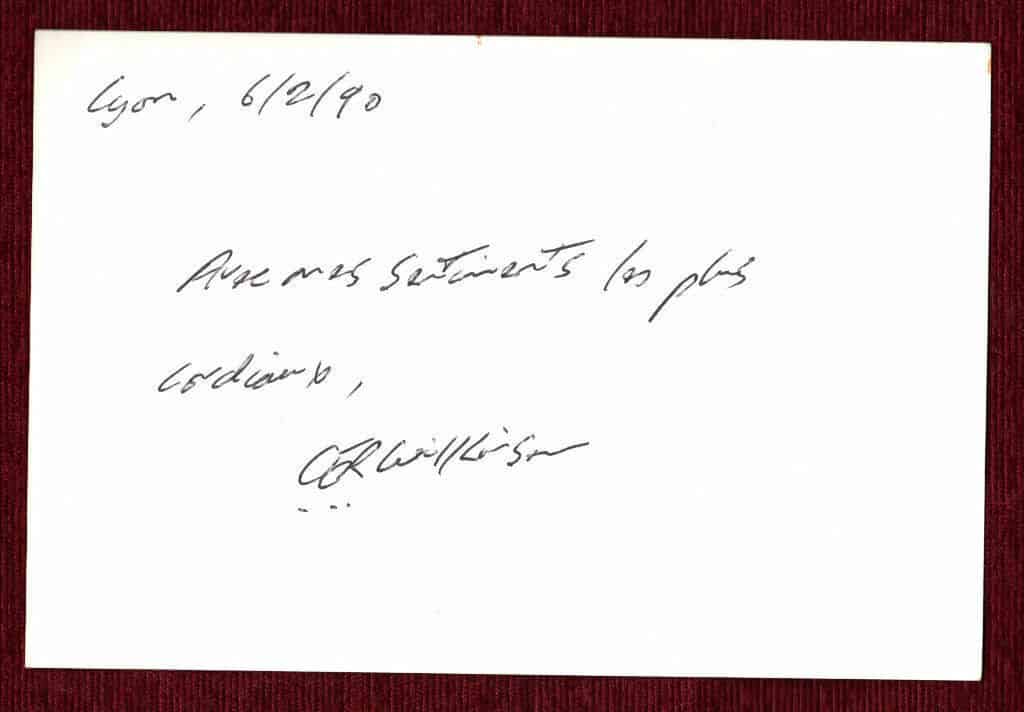 Lyon, 6/2/90
Avec mes sentiments les plus
cordiaux,
CER Wilkinson